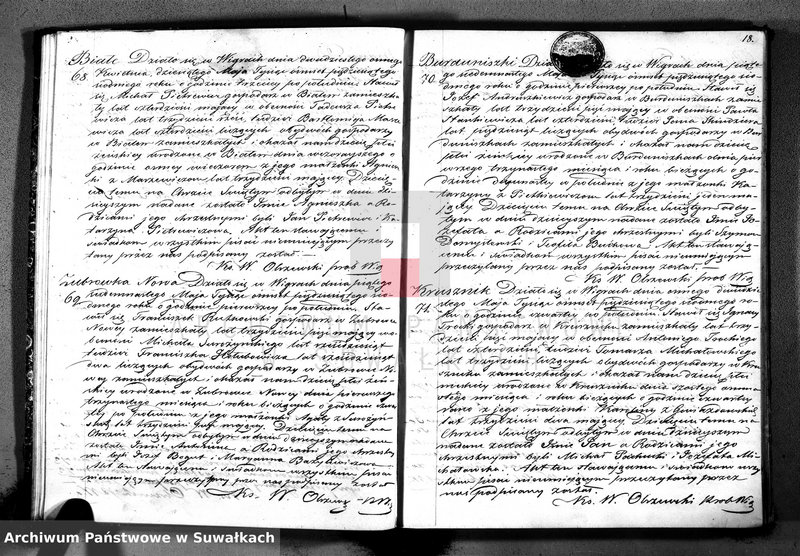 Białe Działo się w Wigrach dnia dwudziestego ósmego
68. Kwietnia, dziesiątego Maja Tysiąc ośmset pięćdziesiątego
siódmego roku o godzinie trzeciej po południu. Stawił
się Michał Pietkiewicz gospodarz w Białem zamieszka
ły lat czterdzieści mający w obecności Tadeusza Pietkie
wicza lat trzydzieści sześć tudzież Bartłomieja Marze
wicza lat czterdzieści liczących obydwóch gospodarzy
w Białem zamieszkałych i okazał nam dziecię płci
żeńskiej urodzone w Białem dnia wczorajszego o
godzinie ósmej wieczorem z jego małżonki
z lat trzydzieści mającej. Dziecię
ciu temu na Chrzcie Świętym odbytym w dniu dzi
siejszym nadane zostało Imie Agnieszka a Ro
dzicami jego chrzestnymi byli Jan Pietkiewicz i Ka
tarzyna Pietkiewiczowa. Akt ten stawającemu
i świadkom w wszystkim pisać nieumiejącym przeczy
tany przez nas podpisany został.
Ks. W. Olszewski prob Wig
Zubrówka Nowa Działo się w Wigrach dnia piątego
69. siedemnastego Maja Tysiąc ośmset pięćdziesiątego sió
dmego roku o godzinie pierwszej po południu. Sta
wił się Franciszek Rutkowski gospodarz w Zubrówce
Nowej zamieszkały lat trzydzieści pięć mający w o
becności Michała lat
tudzież Franciszka lat
dwa liczących obydwóch gospodarzy w Zubrówce No
wej zamieszkałych i okazał nam dziecię płci żeń
skiej urodzone w Zubrówce Nowej dnia pierwszego
trzynastego miesiąca i roku bieżących o godzinie czwa
rtej po południu z jego małżonki Agaty z
lat trzydzieści mającej. Dziecięciu temu na
Chrzcie Świętym odbytym w dniu dzisiejszym nadane
zostało Imie Antonina a Rodzicami jego chrzestny
mi byli Józef i Maryanna
Akt ten stawającemu i świadkom wszystkim pisać
nieumiejącym przeczytany przez nas podpisany został
Ks. W. Olszew. P.W.
18.
Burduniszki Działo się w Wigrach dnia piąte
70. go siedemnastego Maja Tysiąc ośmset pięćdziesiątego sió
dmego roku o godzinie pierwszej po południu. Stawił się
Józef Andruszkiewicz gospodarz w Burduniszkach zamie
szkały lat trzydzieści pięć mający w obecności Pawła
Stankiewicza lat czterdzieści, tudzież Jana
lat pięćdziesiąt liczących obydwóch gospodarzy w Bur
duniszkach zamieszkałych i okazał nam dziecię
płci żeńskiej urodzone w Burduniszkach dnia pier
wszego trzynastego miesiąca i roku bieżących o go
dzinie dwunastej w południe z jego małżonki Ka
tarzyny z Pietkiewiczów lat trzydzieści jeden ma
jącej. Dziecięciu temu na Chrzcie Świętym odby
tym w dniu dzisiejszym nadane zostało Imie Jó
zefata a Rodzicami jego chrzestnymi byli Szymon
i Teofila Akt ten stawają
cemu i świadkom wszystkim pisać nieumiejącym
przeczytany przez nas podpisany został.
Ks. W. Olszewski prob Wig
Krusznik Działo się w Wigrach dnia ósmego dwudzie
71. stego Maja Tysiąc ośmset pięćdziesiątego siódmego ro
ku o godzinie czwartej po południu. Stawił się Ignacy
Trocki gospodarz w Kruszniku zamieszkały lat trzy
dzieści mający w obecności Antoniego Trockiego
lat czterdzieści, tudzież Tomasza Michałowskiego
lat trzydzieści liczących obydwóch gospodarzy w Kru
szniku zamieszkałych i okazał nam dziecię płci
męskiej urodzone w Kruszniku dnia szóstego ośmna
stego miesiąca i roku bieżących o godzinie czwartej
rano z jego małżonki Karoliny z
lat trzydzieści dwa mającej. Dziecięciu temu na
Chrzcie Świętym odbytym w dniu dzisiejszym
nadane zostało Imie Jan a Rodzicami jego
chrzestnymi byli Michał i Józefata Mi
chałowska. Akt ten stawającemu i świadkom wszy
stkim pisać nieumiejącym przeczytany przez
nas podpisany został.
Ks. W. Olszewski prob Wig
Archiwum Państwowe w Suwałkach